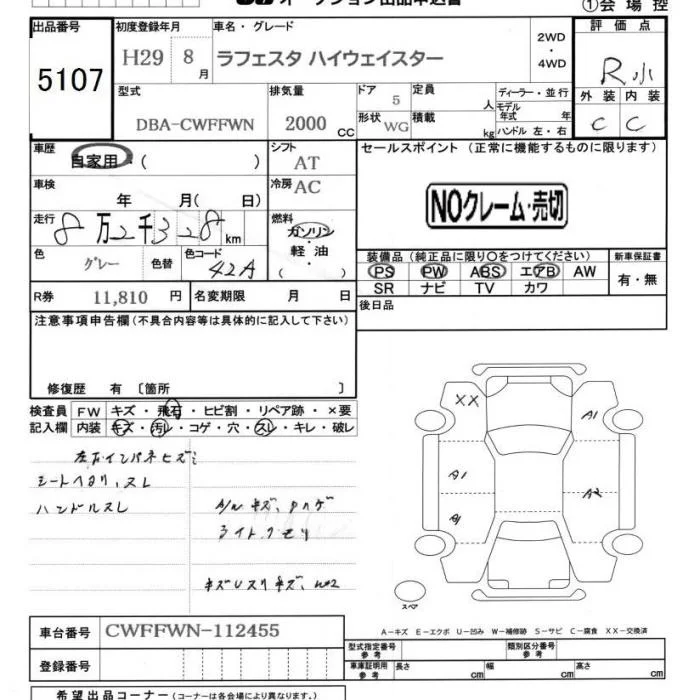 オークション出品申込書
①会場控
出品番号 初度登録年月 車名・グレード 評価点
5107 H29 8月 ラフェスタ ハイウェイスター 2WD・4WD R小
型式 排気量 ドア 定員 ディーラー・並行 外装 内装
DBA-CWFFWN 2000CC 5 人 モデル年式 年 C C
形状 WG 積載 kg ハンドル 左・右
車歴 自家用・( ) シフト AT セールスポイント(正常に機能するものに限ります)
車検 年 月( 日) 冷房 AC
NOクレーム・売切
走行 8万2千328km 燃料 ガソリン・軽油・( )
色 グレー 色替 色コード 42A
装備品(純正品に限り〇をつけてください) 新車保証書
PS PW ABS エアB AW 有・無
SR ナビ TV カワ
R券 11,810 円 名変期限 月 日 後日品
注意事項申告欄(不具合内容等は具体的に記入して下さい)
修復歴 有 〔箇所 〕
検査員 FW キズ・飛石・ヒビ割・リペア跡・×要
記入欄 内装 キズ・汚レ・コゲ・穴・スレ・キレ・破レ
左右インパネヒズミ
シートヘタリ、スレ
ハンドルスレ A/W キズ、ハゲ
ライトクモリ
XX A1
A1 A2
A1
スペア
車台番号 CWFFWN-112455
A-キズ E-エクボ U-凹み W-補修跡 S-サビ C-腐食 XX-交換済
登録番号
型式指定番号 参考 類別区分番号 参考
車庫証明用 参考 長さ cm 幅 cm 高さ cm
希望出品コーナー(コーナーは各会場により異なります。)